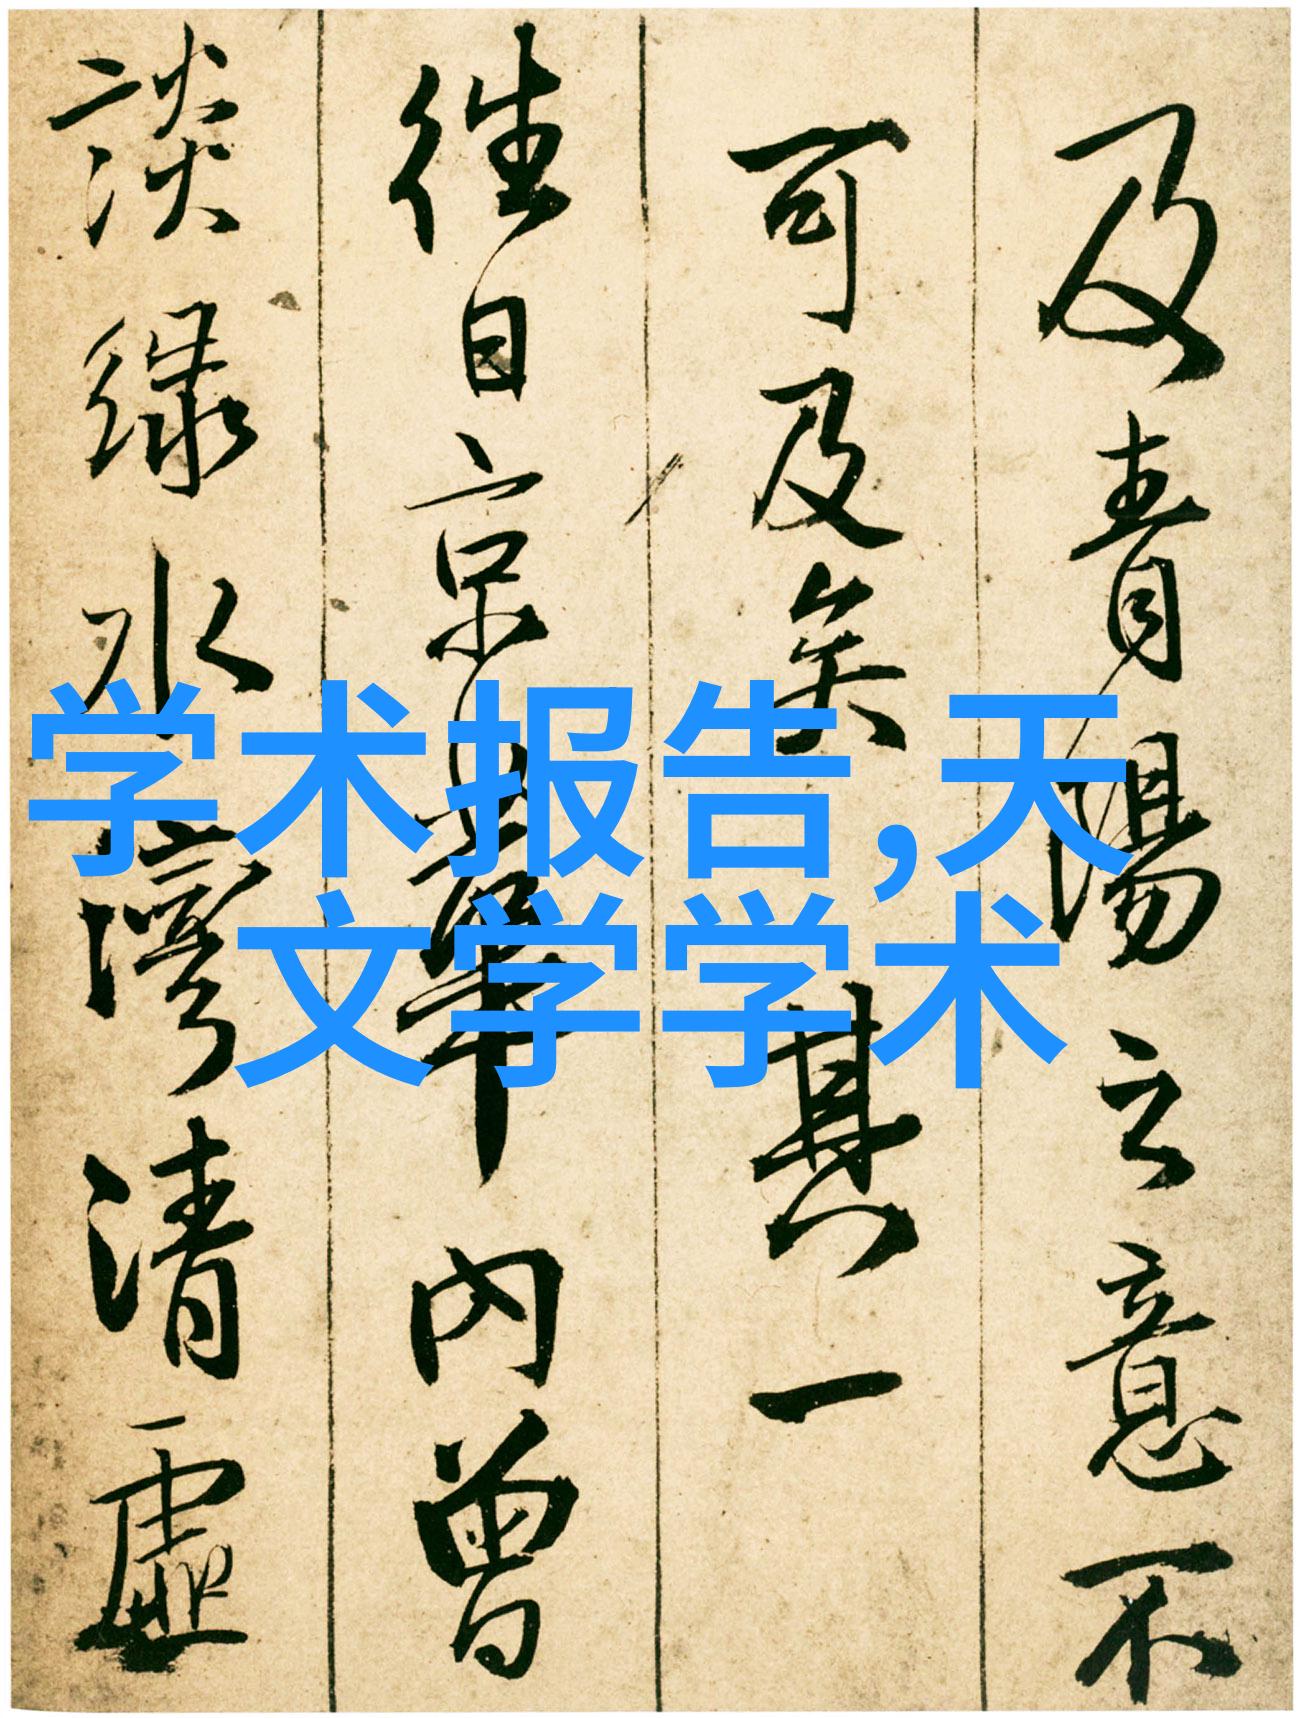 学术报告,天
文学学术
及青陽立意不
可及矣 其一
往日京華内曾
談緑水灣清虛